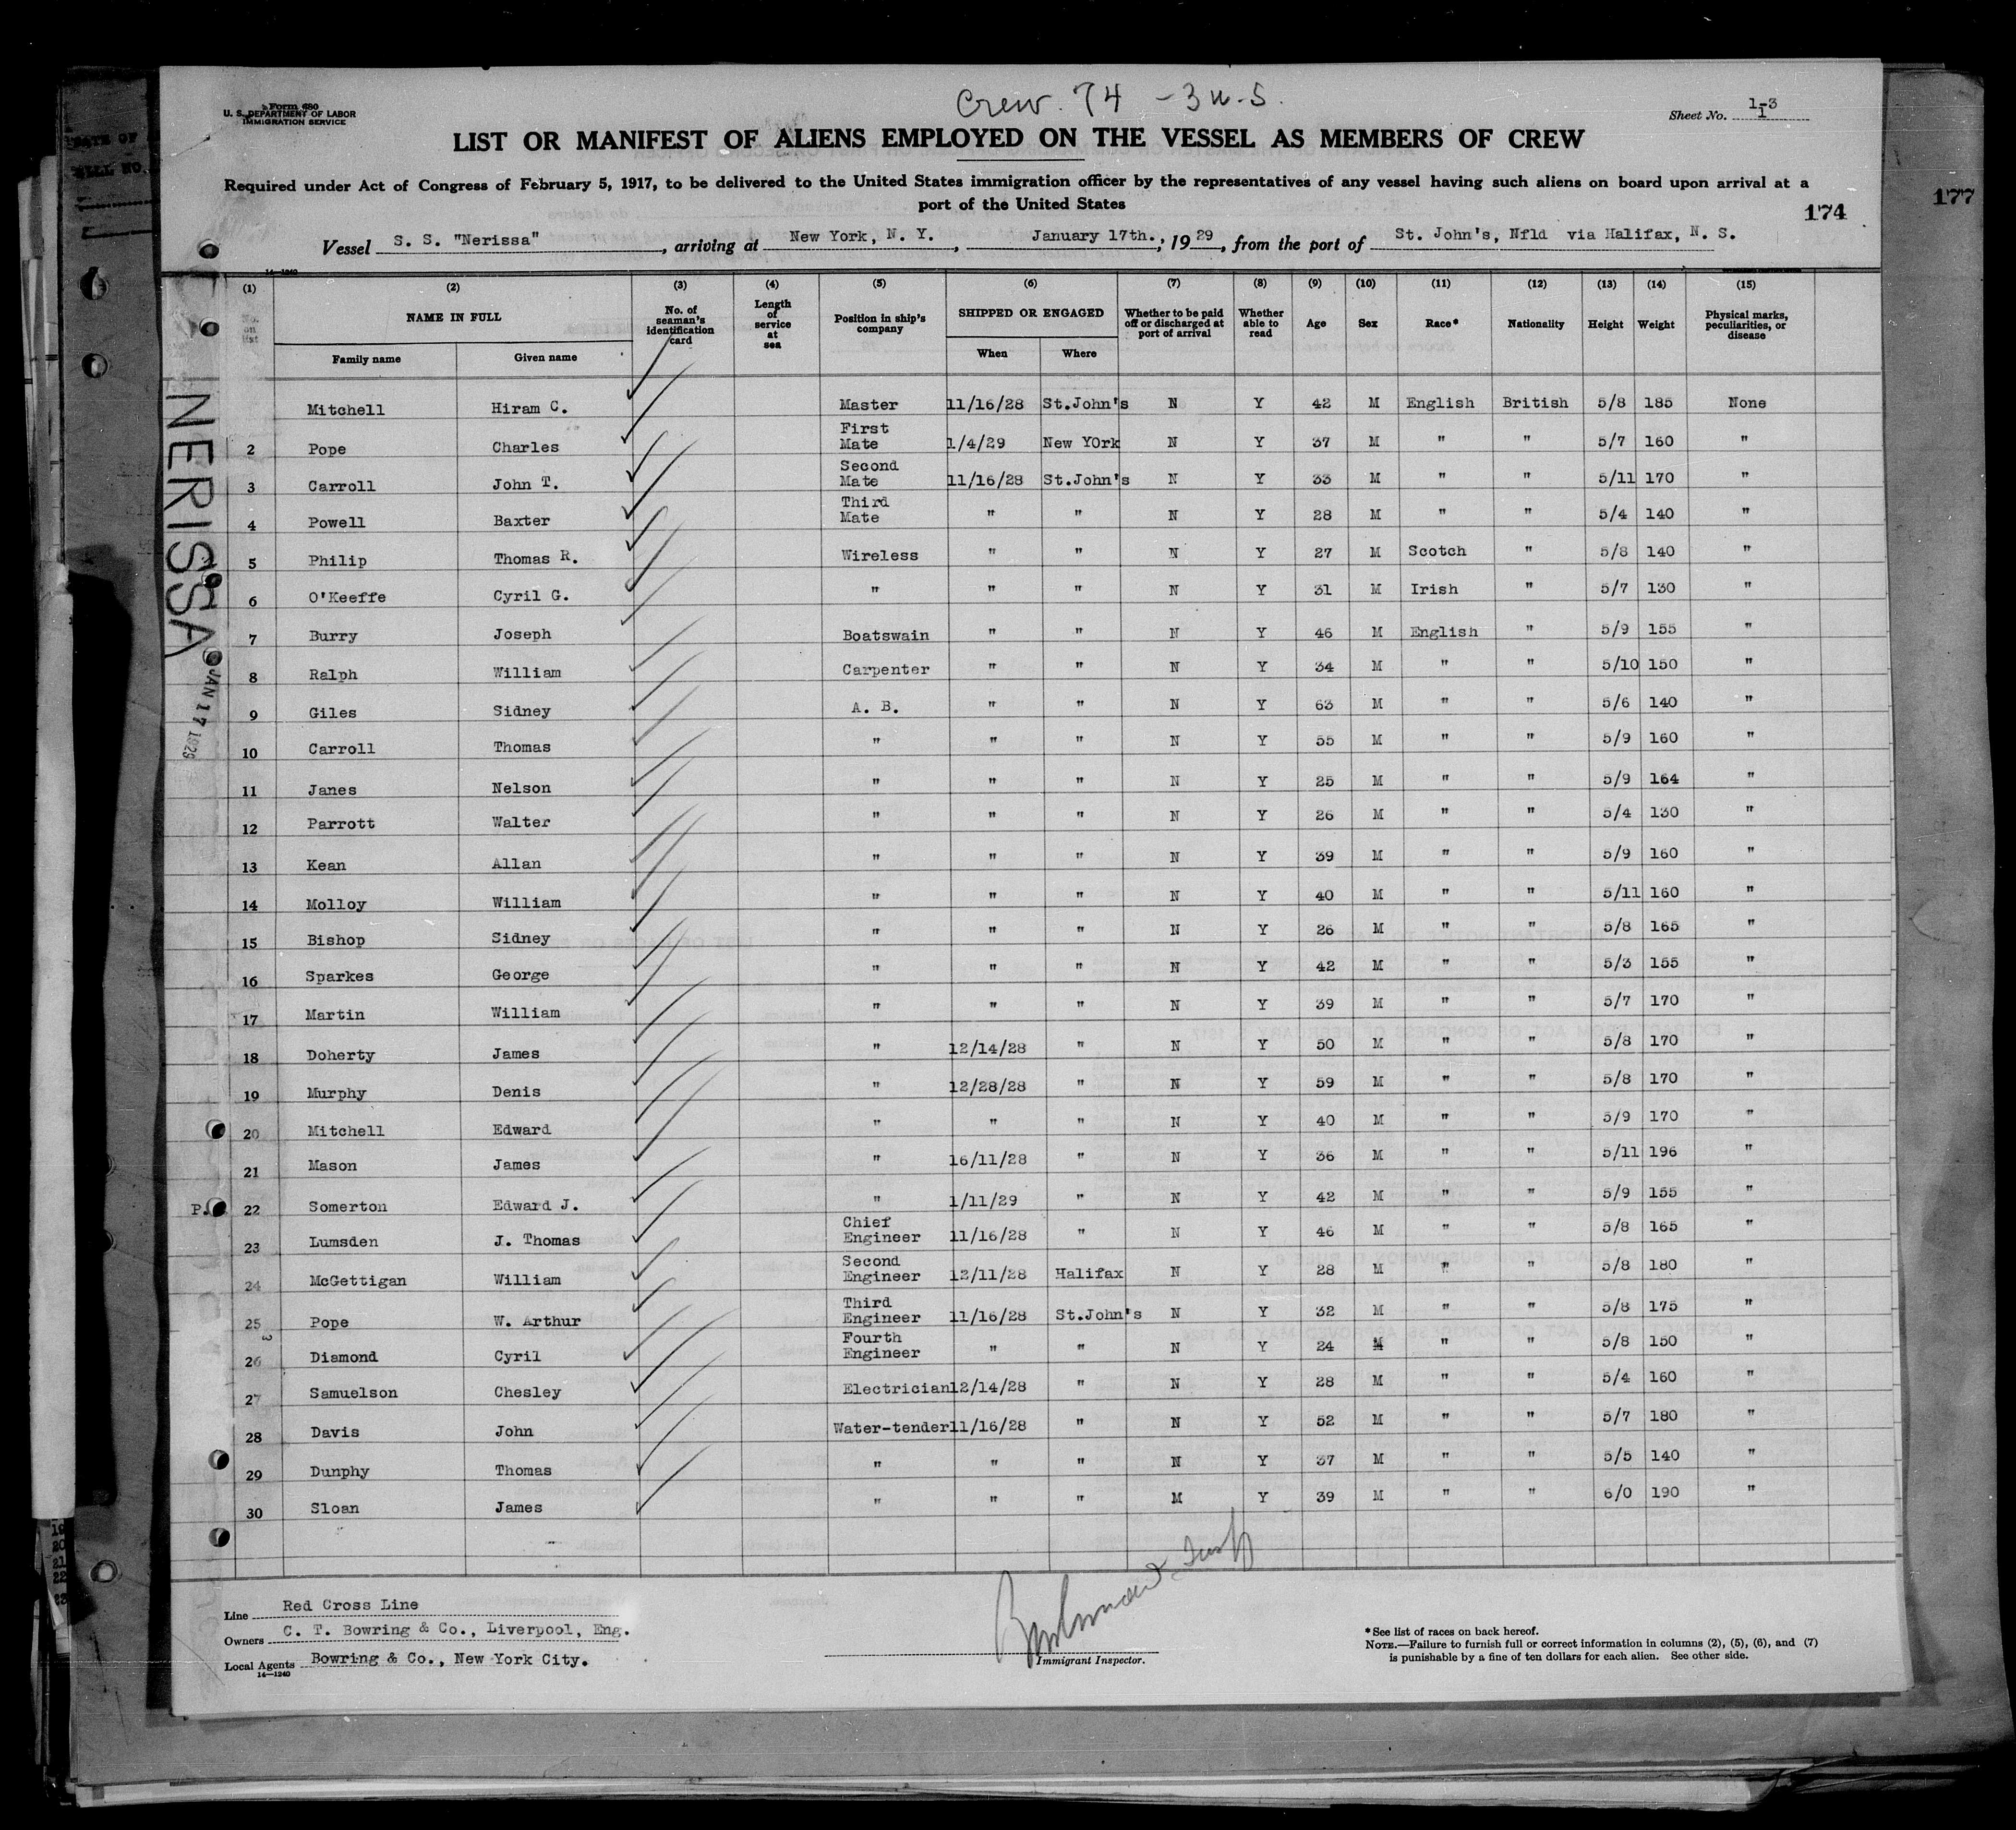 Crew. 74 - 3 U.S.
Form 680
U. S. DEPARTMENT OF LABOR
IMMIGRATION SERVICE
Sheet No. 1-3
1
LIST OR MANIFEST OF ALIENS EMPLOYED ON THE VESSEL AS MEMBERS OF CREW
Required under Act of Congress of February 5, 1917, to be delivered to the United States immigration officer by the representatives of any vessel having such aliens on board upon arrival at a
port of the United States
174
177
Vessel S. S. "Nerissa", arriving at New York, N. Y., January 17th., 1929, from the port of St. John's, Nfld via Halifax, N. S.
14-1240
(1) (2) (3) (4) (5) (6) (7) (8) (9) (10) (11) (12) (13) (14) (15)
No. on list
NAME IN FULL
Family name
Given name
No. of seaman's identification card
Length of service at sea
Position in ship's company
SHIPPED OR ENGAGED
When
Where
Whether to be paid off or discharged at port of arrival
Whether able to read
Age
Sex
Race*
Nationality
Height
Weight
Physical marks, peculiarities, or disease
Mitchell Hiram C. Master 11/16/28 St.John's N Y 42 M English British 5/8 185 None
2 Pope Charles First Mate 1/4/29 New YOrk N Y 37 M " " 5/7 160 "
3 Carroll John T. Second Mate 11/16/28 St.John's N Y 33 M " " 5/11 170 "
4 Powell Baxter Third Mate " " N Y 28 M " " 5/4 140 "
5 Philip Thomas R. Wireless " " N Y 27 M Scotch " 5/8 140 "
6 O'Keeffe Cyril G. " " " N Y 31 M Irish " 5/7 130 "
7 Burry Joseph Boatswain " " N Y 46 M English " 5/9 155 "
8 Ralph William Carpenter " " N Y 34 M " " 5/10 150 "
9 Giles Sidney A. B. " " N Y 63 M " " 5/6 140 "
10 Carroll Thomas " " " N Y 55 M " " 5/9 160 "
11 Janes Nelson " " " N Y 25 M " " 5/9 164 "
12 Parrott Walter " " " N Y 26 M " " 5/4 130 "
13 Kean Allan " " " N Y 39 M " " 5/9 160 "
14 Molloy William " " " N Y 40 M " " 5/11 160 "
15 Bishop Sidney " " " N Y 26 M " " 5/8 165 "
16 Sparkes George " " " N Y 42 M " " 5/3 155 "
17 Martin William " " " N Y 39 M " " 5/7 170 "
18 Doherty James " 12/14/28 " N Y 50 M " " 5/8 170 "
19 Murphy Denis " 12/28/28 " N Y 59 M " " 5/8 170 "
20 Mitchell Edward " " " N Y 40 M " " 5/9 170 "
21 Mason James " 16/11/28 " N Y 36 M " " 5/11 196 "
P. 22 Somerton Edward J. " 1/11/29 " N Y 42 M " " 5/9 155 "
23 Lumsden J. Thomas Chief Engineer 11/16/28 " N Y 46 M " " 5/8 165 "
24 McGettigan William Second Engineer 12/11/28 Halifax N Y 28 M " " 5/8 180 "
25 Pope W. Arthur Third Engineer 11/16/28 St.John's N Y 32 M " " 5/8 175 "
3
26 Diamond Cyril Fourth Engineer " " N Y 24 M " " 5/8 150 "
27 Samuelson Chesley Electrician 12/14/28 " N Y 28 M " " 5/4 160 "
28 Davis John Water-tender 11/16/28 " N Y 52 M " " 5/7 180 "
29 Dunphy Thomas " " " N Y 37 M " " 5/5 140 "
30 Sloan James " " " M Y 39 M " " 6/0 190 "
NERISSA
JAN 17 1929
Line Red Cross Line
Owners C. T. Bowring & Co., Liverpool, Eng.
Local Agents Bowring & Co., New York City.
14-1240
Immigrant Inspector.
*See list of races on back hereof.
NOTE.—Failure to furnish full or correct information in columns (2), (5), (6), and (7)
is punishable by a fine of ten dollars for each alien. See other side.